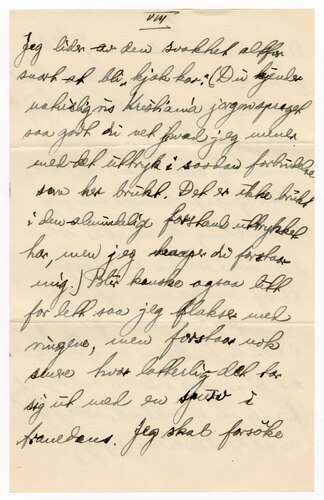 VIII
Jeg lider av den svakhet altfor
snart at bli "kjæk kar". (Du kjender
naturligvis Kristiania jargonsproget
saa godt du vet hvad jeg mener
med det uttryk i saadan forbindelse
som her brukt. Det er ikke brukt
i den almindelig forstand uttrykket
har, men jeg haaper du forstaar
mig.) Blir kanske ogsaa lett
for lett saa jeg flakser med
vingene, men forstaar nok
senere hvor latterlig det tar
sig ut med en spurv i
tranedans. Jeg skal forsøke